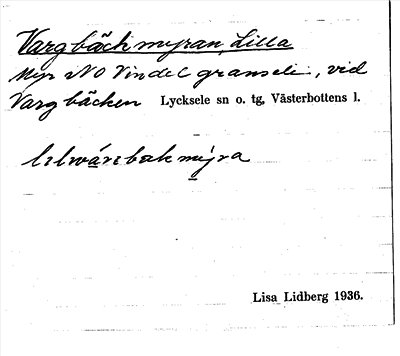 Vargbäckmyran, Lilla
Myr NO Vindelgransele, vid
Vargbäcken Lycksele sn o. tg, Västerbottens l.
Lisa Lidberg 1936.